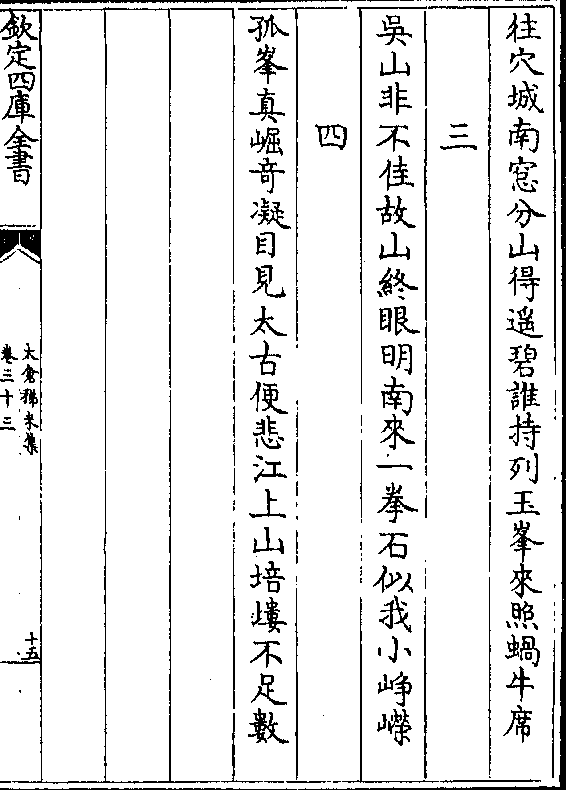 往穴城南窓分山得遥碧誰持列玉峯來照蝸牛席
三
吳山非不佳故山終眼明南來一拳石似我小崢嶸
四
孤峯真崛竒凝目見太古便悲江上山培塿不足數
欽定四庫全書
太倉稊米集
卷三十三
十五